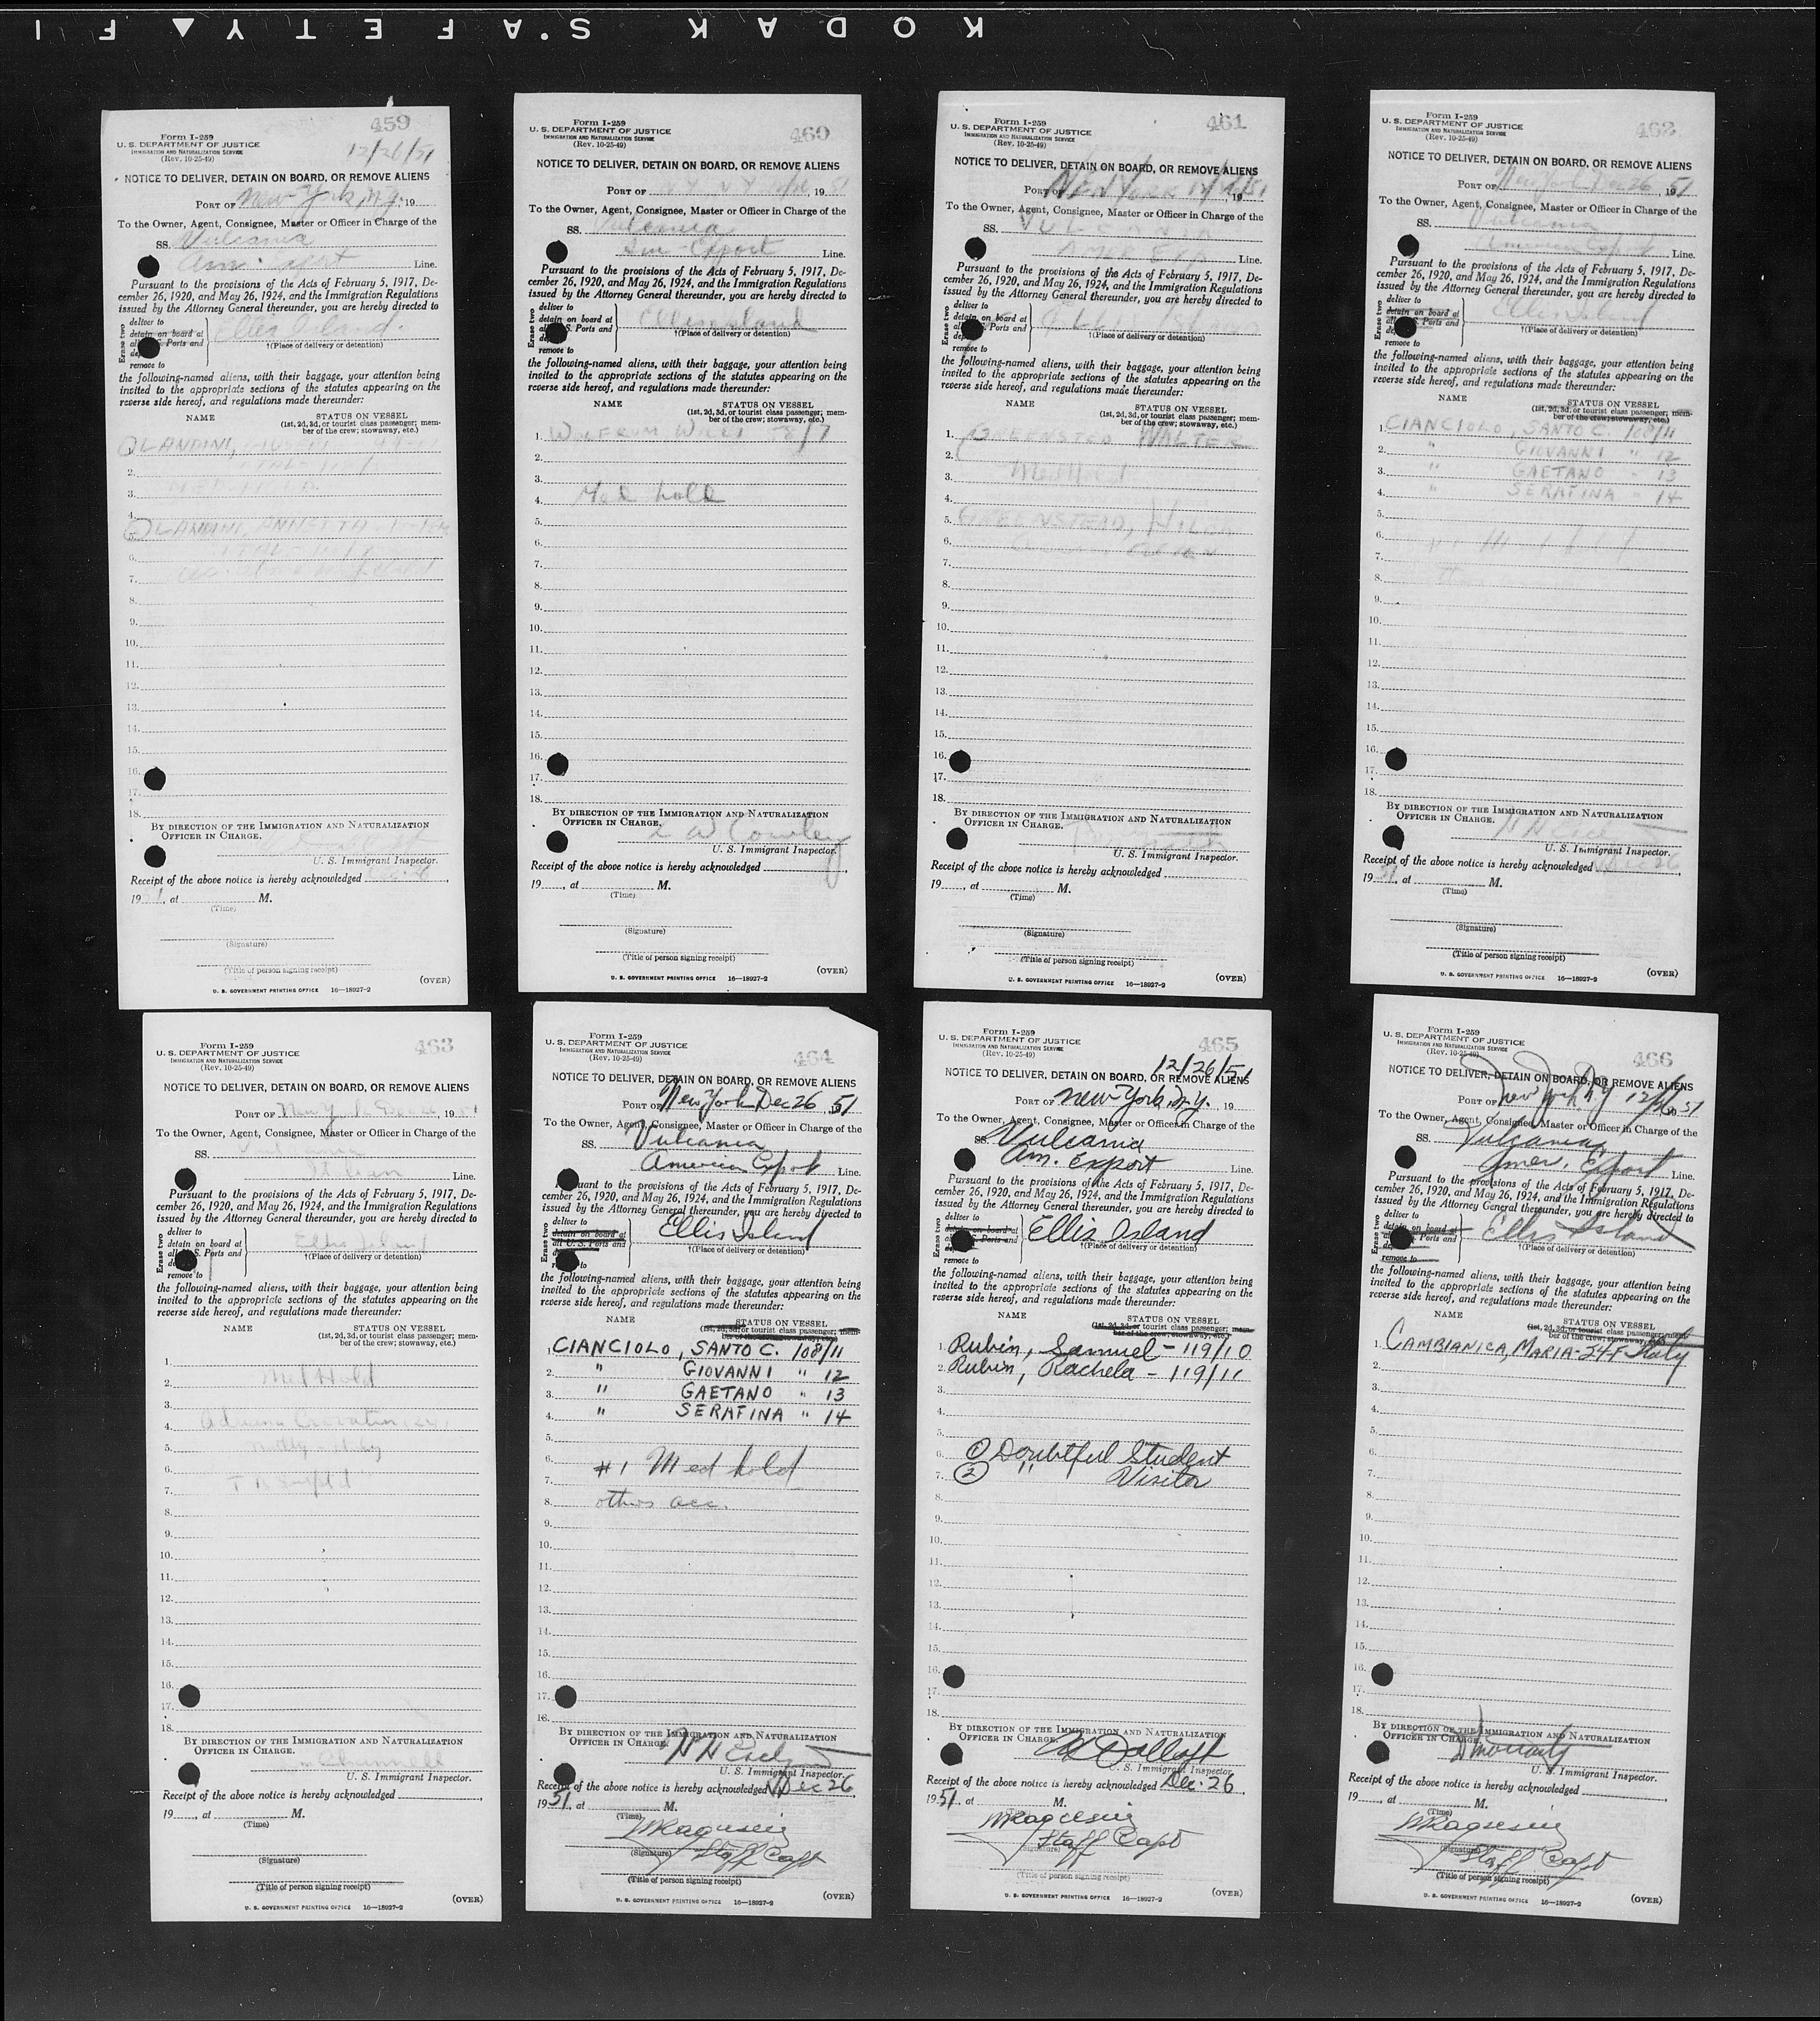 KODAK SAFETY FI
459
Form I-259
U. S. DEPARTMENT OF JUSTICE
IMMIGRATION AND NATURALIZATION SERVICE
(Rev. 10-25-49)
12/26/51
NOTICE TO DELIVER, DETAIN ON BOARD, OR REMOVE ALIENS
PORT OF New York, N.Y. 19
To the Owner, Agent, Consignee, Master or Officer in Charge of the
SS. Vulcania
Am. Export Line.
Pursuant to the provisions of the Acts of February 5, 1917, De-
cember 26, 1920, and May 26, 1924, and the Immigration Regulations
issued by the Attorney General thereunder, you are hereby directed to
Erase two
deliver to
detain on board at
all U. S. Ports and
remove to
Ellis Island.
†(Place of delivery or detention)
the following-named aliens, with their baggage, your attention being
invited to the appropriate sections of the statutes appearing on the
reverse side hereof, and regulations made thereunder:
NAME STATUS ON VESSEL
(1st, 2d, 3d, or tourist class passenger; mem-
ber of the crew; stowaway, etc.)
1. OLANDINI,
2.
3. MED HOLD
4.
5. OLANDINI, ANNETTA
6.
7.
8.
9.
10.
11.
12.
13.
14.
15.
16.
17.
18.
BY DIRECTION OF THE IMMIGRATION AND NATURALIZATION
OFFICER IN CHARGE.
U. S. Immigrant Inspector.
Receipt of the above notice is hereby acknowledged Dec. 26,
1951, at M.
(Time)
(Signature)
(Title of person signing receipt)
(OVER)
U. S. GOVERNMENT PRINTING OFFICE 16—18927-2
460
Form I-259
U. S. DEPARTMENT OF JUSTICE
IMMIGRATION AND NATURALIZATION SERVICE
(Rev. 10-25-49)
NOTICE TO DELIVER, DETAIN ON BOARD, OR REMOVE ALIENS
PORT OF N Y N Y 19 51
To the Owner, Agent, Consignee, Master or Officer in Charge of the
SS. Vulcania
Am-Export Line.
Pursuant to the provisions of the Acts of February 5, 1917, De-
cember 26, 1920, and May 26, 1924, and the Immigration Regulations
issued by the Attorney General thereunder, you are hereby directed to
Erase two
deliver to
detain on board at
all U. S. Ports and
remove to
Ellis Island
†(Place of delivery or detention)
the following-named aliens, with their baggage, your attention being
invited to the appropriate sections of the statutes appearing on the
reverse side hereof, and regulations made thereunder:
NAME STATUS ON VESSEL
(1st, 2d, 3d, or tourist class passenger; mem-
ber of the crew; stowaway, etc.)
1. WOLFRUM WILLI 8/7
2.
3.
4. Med hold
5.
6.
7.
8.
9.
10.
11.
12.
13.
14.
15.
16.
17.
18.
BY DIRECTION OF THE IMMIGRATION AND NATURALIZATION
OFFICER IN CHARGE. L W Conley
U. S. Immigrant Inspector.
Receipt of the above notice is hereby acknowledged ,
19 , at M.
(Time)
(Signature)
(Title of person signing receipt)
(OVER)
U. S. GOVERNMENT PRINTING OFFICE 16—18927-2
461
Form I-259
U. S. DEPARTMENT OF JUSTICE
IMMIGRATION AND NATURALIZATION SERVICE
(Rev. 10-25-49)
NOTICE TO DELIVER, DETAIN ON BOARD, OR REMOVE ALIENS
PORT OF NEW YORK 12/26/51 , 19
To the Owner, Agent, Consignee, Master or Officer in Charge of the
SS. VULCANIA
AMER EXP Line.
Pursuant to the provisions of the Acts of February 5, 1917, De-
cember 26, 1920, and May 26, 1924, and the Immigration Regulations
issued by the Attorney General thereunder, you are hereby directed to
Erase two
deliver to
detain on board at
all U. S. Ports and
remove to
†(Place of delivery or detention)
the following-named aliens, with their baggage, your attention being
invited to the appropriate sections of the statutes appearing on the
reverse side hereof, and regulations made thereunder:
NAME STATUS ON VESSEL
(1st, 2d, 3d, or tourist class passenger; mem-
ber of the crew; stowaway, etc.)
1. GREENSTEAD WALTER
2.
3. Med Hold
4.
5. GREENSTEAD, HILDA
6.
7.
8.
9.
10.
11.
12.
13.
14.
15.
16.
17.
18.
BY DIRECTION OF THE IMMIGRATION AND NATURALIZATION
OFFICER IN CHARGE.
U. S. Immigrant Inspector.
Receipt of the above notice is hereby acknowledged ,
19 , at M.
(Time)
(Signature)
(Title of person signing receipt)
(OVER)
U. S. GOVERNMENT PRINTING OFFICE 16—18927-2
462
Form I-259
U. S. DEPARTMENT OF JUSTICE
IMMIGRATION AND NATURALIZATION SERVICE
(Rev. 10-25-49)
NOTICE TO DELIVER, DETAIN ON BOARD, OR REMOVE ALIENS
PORT OF New York Dec 26 19 51
To the Owner, Agent, Consignee, Master or Officer in Charge of the
SS. Vulcania
American Export Line.
Pursuant to the provisions of the Acts of February 5, 1917, De-
cember 26, 1920, and May 26, 1924, and the Immigration Regulations
issued by the Attorney General thereunder, you are hereby directed to
Erase two
deliver to
detain on board at
all U. S. Ports and
remove to
Ellis Island
†(Place of delivery or detention)
the following-named aliens, with their baggage, your attention being
invited to the appropriate sections of the statutes appearing on the
reverse side hereof, and regulations made thereunder:
NAME STATUS ON VESSEL
(1st, 2d, 3d, or tourist class passenger; mem-
ber of the crew; stowaway, etc.)
1. CIANCIOLO, SANTO C. 108/11
2. " GIOVANNI " 12
3. " GAETANO " 13
4. " SERAFINA " 14
5.
6. #1 Med hold
7.
8.
9.
10.
11.
12.
13.
14.
15.
16.
17.
18.
BY DIRECTION OF THE IMMIGRATION AND NATURALIZATION
OFFICER IN CHARGE.
U. S. Immigrant Inspector.
Receipt of the above notice is hereby acknowledged Dec 26,
1951, at M.
(Time)
(Signature)
(Title of person signing receipt)
(OVER)
U. S. GOVERNMENT PRINTING OFFICE 16—18927-2
463
Form I-259
U. S. DEPARTMENT OF JUSTICE
IMMIGRATION AND NATURALIZATION SERVICE
(Rev. 10-25-49)
NOTICE TO DELIVER, DETAIN ON BOARD, OR REMOVE ALIENS
PORT OF New York Dec 26, 19 51
To the Owner, Agent, Consignee, Master or Officer in Charge of the
SS. Vulcania
Italian Line.
Pursuant to the provisions of the Acts of February 5, 1917, De-
cember 26, 1920, and May 26, 1924, and the Immigration Regulations
issued by the Attorney General thereunder, you are hereby directed to
Erase two
deliver to
detain on board at
all U. S. Ports and
remove to
Ellis Island
†(Place of delivery or detention)
the following-named aliens, with their baggage, your attention being
invited to the appropriate sections of the statutes appearing on the
reverse side hereof, and regulations made thereunder:
NAME STATUS ON VESSEL
(1st, 2d, 3d, or tourist class passenger; mem-
ber of the crew; stowaway, etc.)
1.
2. Med Hold
3.
4.
5.
6.
7.
8.
9.
10.
11.
12.
13.
14.
15.
16.
17.
18.
BY DIRECTION OF THE IMMIGRATION AND NATURALIZATION
OFFICER IN CHARGE.
U. S. Immigrant Inspector.
Receipt of the above notice is hereby acknowledged ,
19 , at M.
(Time)
(Signature)
(Title of person signing receipt)
(OVER)
U. S. GOVERNMENT PRINTING OFFICE 16—18927-2
464
Form I-259
U. S. DEPARTMENT OF JUSTICE
IMMIGRATION AND NATURALIZATION SERVICE
(Rev. 10-25-49)
NOTICE TO DELIVER, DETAIN ON BOARD, OR REMOVE ALIENS
PORT OF New York Dec 26, 51
To the Owner, Agent, Consignee, Master or Officer in Charge of the
SS. Vulcania
American Export Line.
Pursuant to the provisions of the Acts of February 5, 1917, De-
cember 26, 1920, and May 26, 1924, and the Immigration Regulations
issued by the Attorney General thereunder, you are hereby directed to
Erase two
deliver to
detain on board at
all U. S. Ports and
remove to
Ellis Island
†(Place of delivery or detention)
the following-named aliens, with their baggage, your attention being
invited to the appropriate sections of the statutes appearing on the
reverse side hereof, and regulations made thereunder:
NAME STATUS ON VESSEL
(1st, 2d, 3d, or tourist class passenger; mem-
ber of the crew; stowaway, etc.)
1. CIANCIOLO, SANTO C. 108/11
2. " GIOVANNI " 12
3. " GAETANO " 13
4. " SERAFINA " 14
5.
6.
7. #1 Med hold
8. others acc.
9.
10.
11.
12.
13.
14.
15.
16.
17.
18.
BY DIRECTION OF THE IMMIGRATION AND NATURALIZATION
OFFICER IN CHARGE.
U. S. Immigrant Inspector.
Receipt of the above notice is hereby acknowledged Dec 26,
1951, at M.
(Time)
(Signature)
Staff Capt
(Title of person signing receipt)
(OVER)
U. S. GOVERNMENT PRINTING OFFICE 16—18927-2
465
Form I-259
U. S. DEPARTMENT OF JUSTICE
IMMIGRATION AND NATURALIZATION SERVICE
(Rev. 10-25-49)
12/26/51
NOTICE TO DELIVER, DETAIN ON BOARD, OR REMOVE ALIENS
PORT OF New York, N.Y. , 19
To the Owner, Agent, Consignee, Master or Officer in Charge of the
SS. Vulcania
Am. Export Line.
Pursuant to the provisions of the Acts of February 5, 1917, De-
cember 26, 1920, and May 26, 1924, and the Immigration Regulations
issued by the Attorney General thereunder, you are hereby directed to
Erase two
deliver to
detain on board at
all U. S. Ports and
remove to
Ellis Island
†(Place of delivery or detention)
the following-named aliens, with their baggage, your attention being
invited to the appropriate sections of the statutes appearing on the
reverse side hereof, and regulations made thereunder:
NAME STATUS ON VESSEL
(1st, 2d, 3d, or tourist class passenger; mem-
ber of the crew, stowaway, etc.)
1. Rubin, Samuel - 119/10
2. Rubin, Rachela - 119/11
3.
4.
5.
6. ① Doubtful Student
7. ② " Visitor
8.
9.
10.
11.
12.
13.
14.
15.
16.
17.
18.
BY DIRECTION OF THE IMMIGRATION AND NATURALIZATION
OFFICER IN CHARGE.
U. S. Immigrant Inspector.
Receipt of the above notice is hereby acknowledged Dec. 26,
1951, at M.
(Time)
Staff Capt
(Signature)
(Title of person signing receipt)
(OVER)
U. S. GOVERNMENT PRINTING OFFICE 16—18927-2
466
Form I-259
U. S. DEPARTMENT OF JUSTICE
IMMIGRATION AND NATURALIZATION SERVICE
(Rev. 10-25-49)
NOTICE TO DELIVER, DETAIN ON BOARD, OR REMOVE ALIENS
PORT OF New York, NY 12/26 1951
To the Owner, Agent, Consignee, Master or Officer in Charge of the
SS. Vulcania
Amer. Export Line.
Pursuant to the provisions of the Acts of February 5, 1917, De-
cember 26, 1920, and May 26, 1924, and the Immigration Regulations
issued by the Attorney General thereunder, you are hereby directed to
Erase two
deliver to
detain on board at
all U. S. Ports and
remove to
Ellis Island
†(Place of delivery or detention)
the following-named aliens, with their baggage, your attention being
invited to the appropriate sections of the statutes appearing on the
reverse side hereof, and regulations made thereunder:
NAME STATUS ON VESSEL
(1st, 2d, 3d, or tourist class passenger; mem-
ber of the crew, stowaway, etc.)
1. CAMBIANICA, MARIA-34F-Italy
2.
3.
4.
5.
6.
7.
8.
9.
10.
11.
12.
13.
14.
15.
16.
17.
18.
BY DIRECTION OF THE IMMIGRATION AND NATURALIZATION
OFFICER IN CHARGE.
U. S. Immigrant Inspector.
Receipt of the above notice is hereby acknowledged ,
19 , at M.
(Time)
(Signature)
Staff Capt
(Title of person signing receipt)
(OVER)
U. S. GOVERNMENT PRINTING OFFICE 16—18927-2